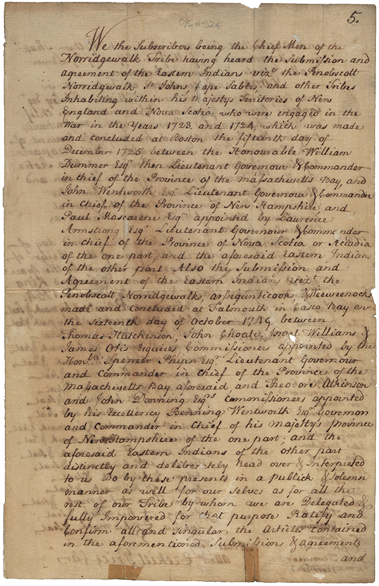 5.
We the Subscribers being the Chief Men of the
Norridgewalk Tribe having heard the Submission and
agreement of the Eastern Indians vizt the Penobscott
Norridgwalk, St Johns, Cape Sables, and other Tribes
Inhabiting within his Majestys Territories of New
England and Nova Scotia, who were engaged in the
War in the Years 1723, and 1724, which was made
and concluded at Boston the fifteenth day of
December 1725 between the Honourable William
Dummer Esqr then Lieutenant Governour & Commander
in chief of the Province of the Massachusetts Bay, and
John Wentworth Esqr Lieutenant Governour & Commander
in Chief of the Province of New Hampshire, and
Paul Mascarene Esqr appointed by Laurence
Armstrong Esqr Lieutenant Governour & Commander
in chief of the Province of Nova Scotia or Accadia
of the one part, and the aforesaid Eastern Indians
of the other part Also the Submission and
Agreement of the Eastern Indians vizt the
Penobscot Norridgewalk, Arsegunticook & Weweenock
made and concluded at Falmouth in Casco Bay on
the sixteenth day of October between
Thomas Hutchinson, John Choate, Israel Williams &
James Otis Esquires Commissioners appointed by the
Honble Spencer Phips Esqr Lieutenant Governour
and Commander in Chief of the Province of the
Massachusetts Bay aforesaid and Theodore Atkinson
and John Downing Esqrs Commissioners appointed
by his Excellency Benning Wentworth Esqr Governor
and Commander in Chief of his majestys province
of New Hampshire of the one part; and the
aforesaid Eastern Indians of the other part
distinctly and deliberately head over & Interpreted
to us Do by these presents in a publick & Solemn
manner as well for our selves as for all the
rest of our Tribe by whom we are Delegated &
fully Impowered for that purpose Ratify and
Confirm all and singular, the Articles contained
in the aforementioned Submission & agreements
and